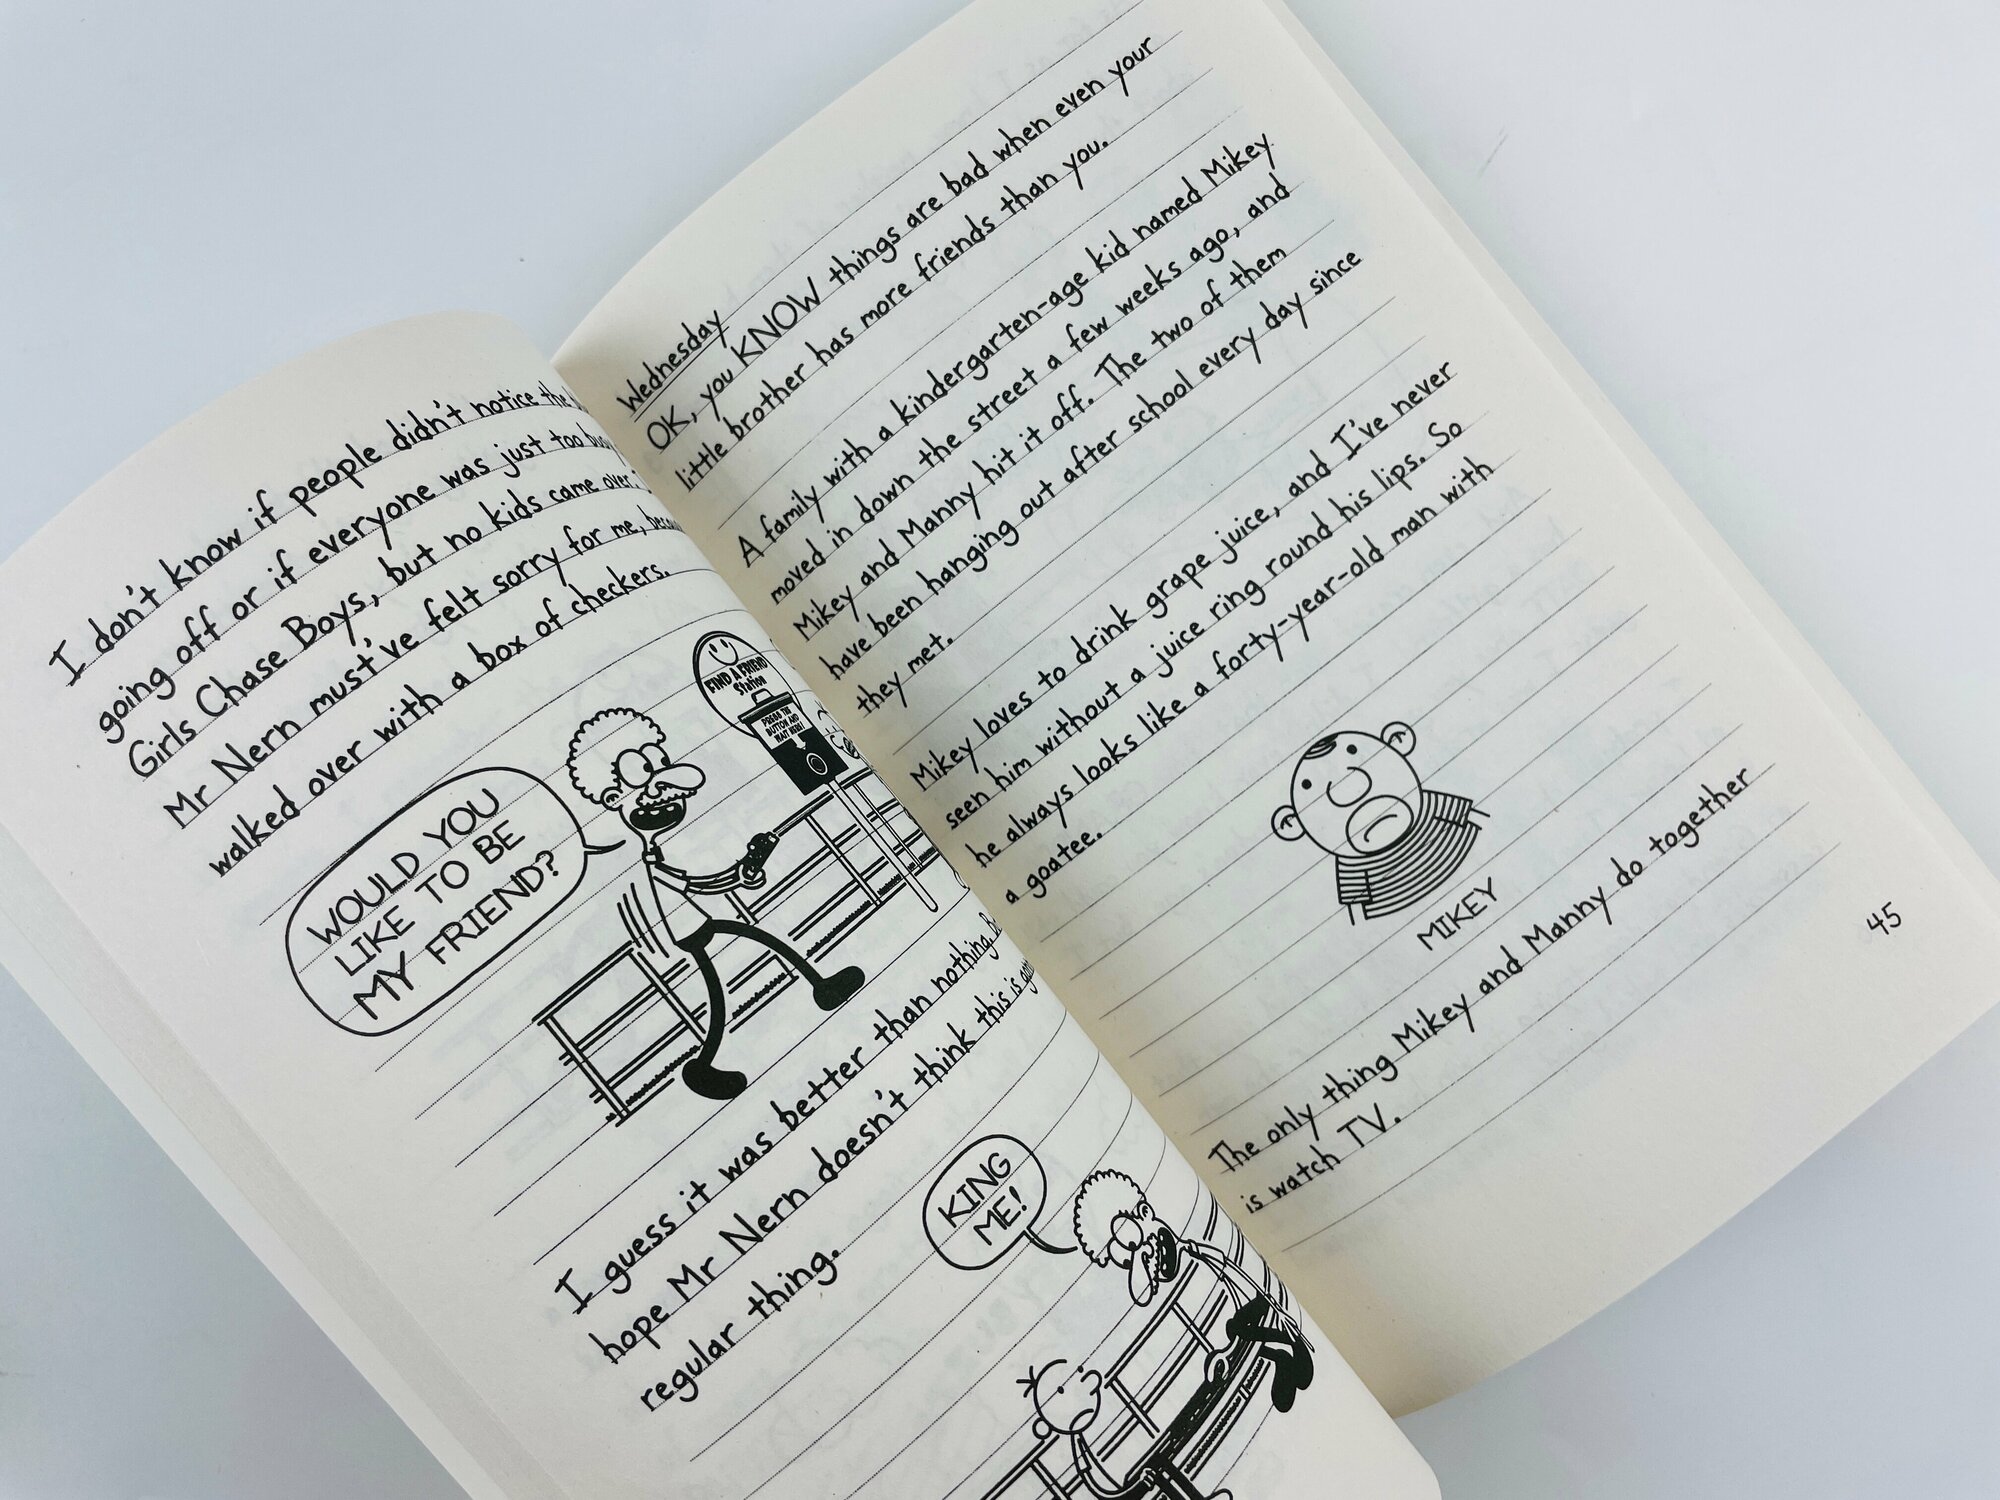 I don't know if people didn't notice the
going off or if everyone was just too busy
Girls Chase Boys, but no kids came over.
Mr Nern must've felt sorry for me,
walked over with a box of checkers.
FIND A FRIEND
Station
PRESS THE
BUTTON AND
WAIT HERE!
WOULD YOU
LIKE TO BE
MY FRIEND?
I guess it was better than nothing.
hope Mr Nern doesn't think this is
regular thing.
KING
ME!
Wednesday
OK, you KNOW things are bad when even your
little brother has more friends than you.
A family with a kindergarten-age kid named Mikey
moved in down the street a few weeks ago, and
Mikey and Manny hit it off. The two of them
have been hanging out after school every day since
they met.
Mikey loves to drink grape juice, and I've never
seen him without a juice ring round his lips. So
he always looks like a forty-year-old man with
a goatee.
MIKEY
The only thing Mikey and Manny do together
is watch TV.
45